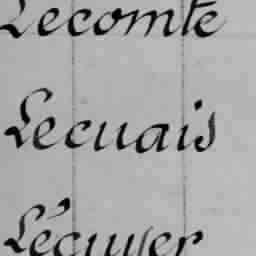 Lecomte
Lecuais
Lécuyer